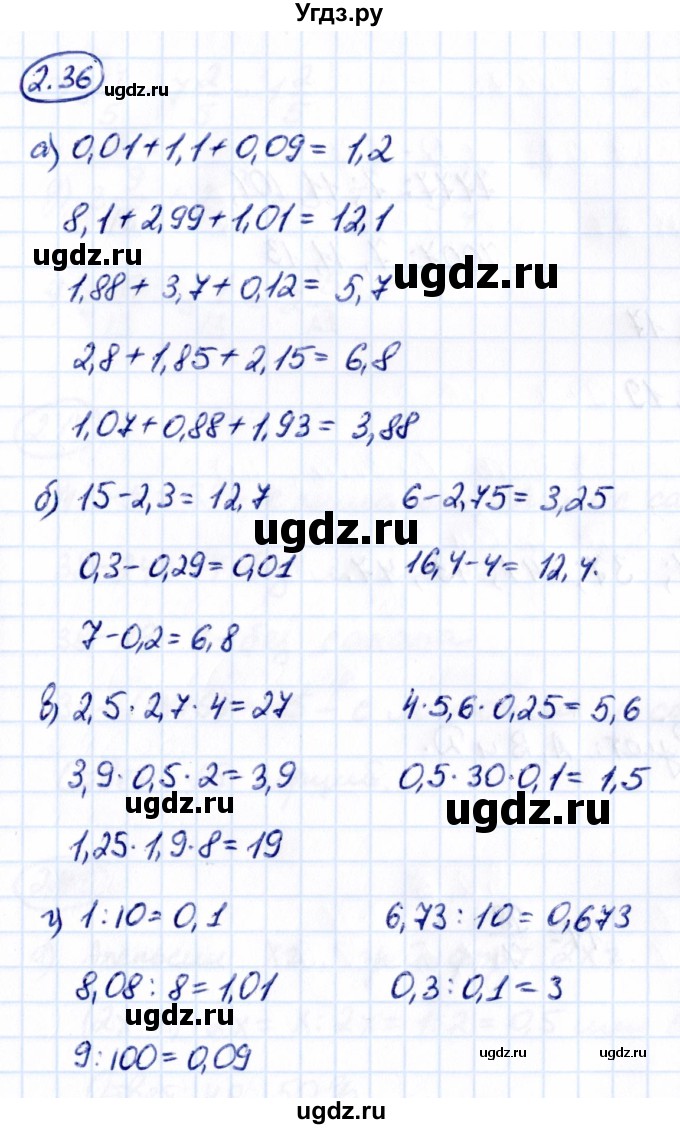 Угдз.ру
2.36
ugdz.ru
а) 0,01+1,1+0,09= 1,2
8,1+2,99+1,01= 12,1
ugdz.ru
ugdz.ru
1,88+ 3,7+0,12= 5,7
2,8+1,85+2,15= 6,8
1,07+0,88+1,93= 3,88
б) 15-2,3= 12,7 6-2,75= 3,25
ugdz.ru
0,3-0,29=0,01 16,4-4= 12,4.
7-0,2=6,8
в) 2,5·2,7·4=27 4·5,6·0,25=5,6
3,9·0,5·2=3,9 0,5·30·0,1= 1,5
ugdz.ru ugdz.ru
1,25·1,9·8=19
г) 1:10=0,1 6,73:10=0,673
8,08:8=1,01 0,3:0,1=3
ugdz.ru
9:100=0,09 ugdz.ru ugdz.ru
ugdz.ru